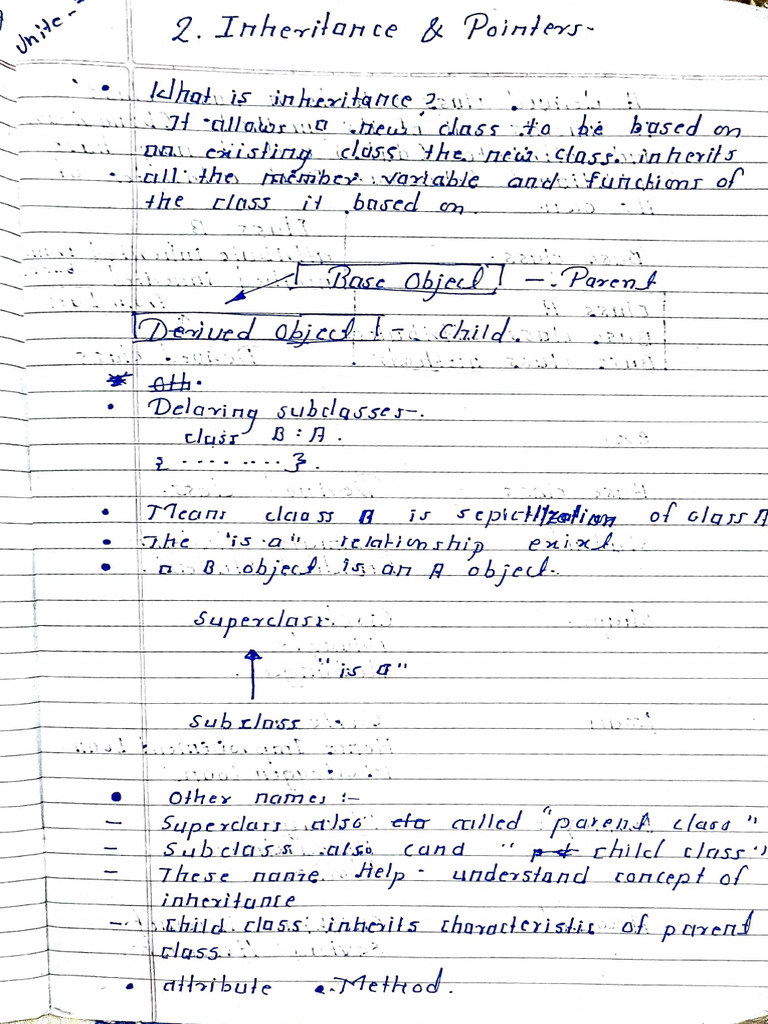 Unite-
2. Inheritance & Pointers-
• What is inheritance?
It allows a new class to be based on
an existing class the new class inherits
• all the member variable and functions of
the class it based on
Base Object -. Parent
Derived Object - Child.
* Oth.
• Delaring subclasses-.
class B : A.
{ ........ }.
• Means claass B is of class A
• The "is a" relationship exixt.
• a B object is an A object.
Superclass.
"is a"
Subclass
• Other names :-
- Superclass also called "parent class"
- Subclass also cand " child class"
- These name Help - understand concept of
inheritance
- Child class inherits characteristic of parent
class
• attribute •.Method.